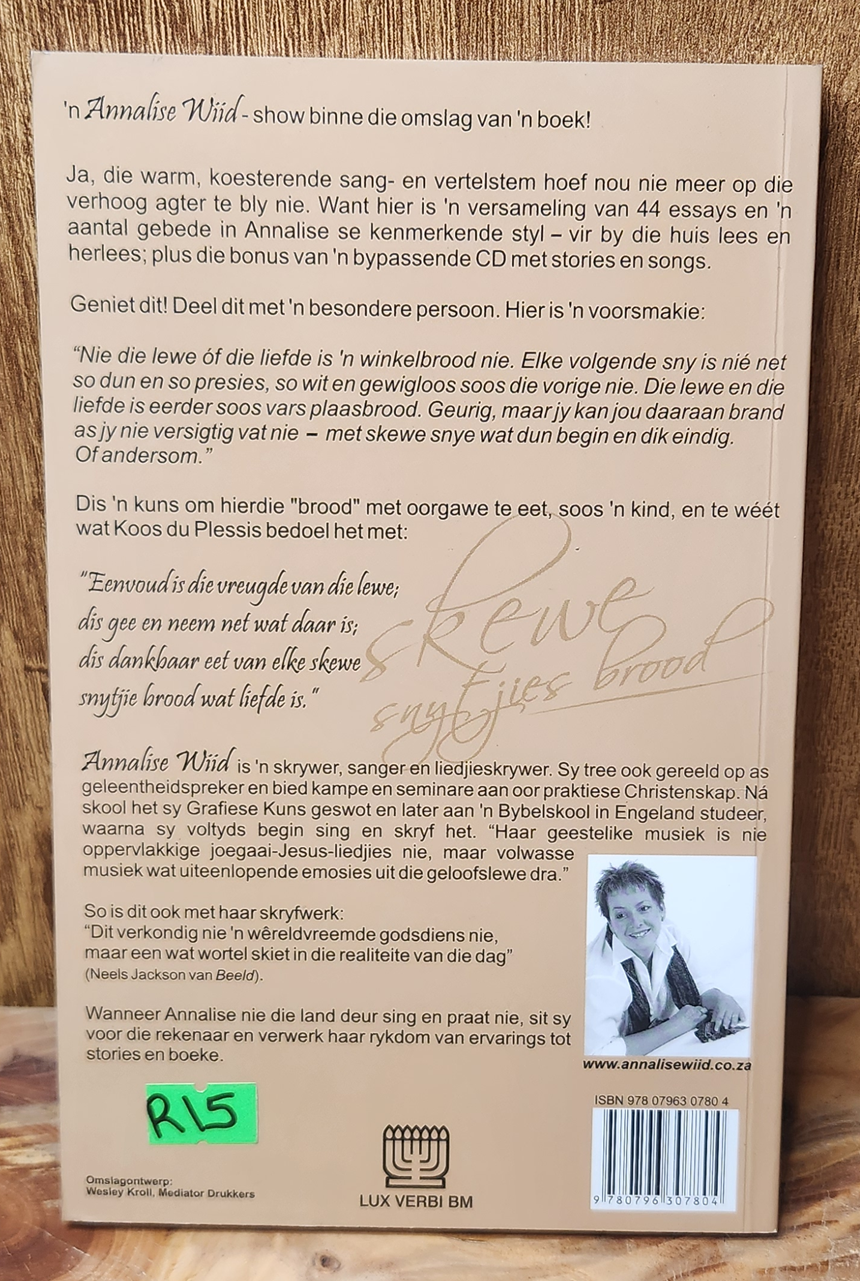 'n Annalise Wiid - show binne die omslag van 'n boek!
Ja, die warm, koesterende sang- en vertelstem hoef nou nie meer op die
verhoog agter te bly nie. Want hier is 'n versameling van 44 essays en 'n
aantal gebede in Annalise se kenmerkende styl – vir by die huis lees en
herlees; plus die bonus van 'n bypassende CD met stories en songs.
Geniet dit! Deel dit met 'n besondere persoon. Hier is 'n voorsmakie:
“Nie die lewe óf die liefde is 'n winkelbrood nie. Elke volgende sny is nié net
so dun en so presies, so wit en gewigloos soos die vorige nie. Die lewe en die
liefde is eerder soos vars plaasbrood. Geurig, maar jy kan jou daaraan brand
as jy nie versigtig vat nie – met skewe snye wat dun begin en dik eindig.
Of andersom.”
Dis 'n kuns om hierdie "brood" met oorgawe te eet, soos 'n kind, en te wéét
wat Koos du Plessis bedoel het met:
“Eenvoud is die vreugde van die lewe;
dis gee en neem net wat daar is;
dis dankbaar eet van elke skewe
snytjie brood wat liefde is.”
skewe
snytjies brood
Annalise Wiid is 'n skrywer, sanger en liedjieskrywer. Sy tree ook gereeld op as
geleentheidspreker en bied kampe en seminare aan oor praktiese Christenskap. Ná
skool het sy Grafiese Kuns geswot en later aan 'n Bybelskool in Engeland studeer,
waarna sy voltyds begin sing en skryf het. “Haar geestelike musiek is nie
oppervlakkige joegaai-Jesus-liedjies nie, maar volwasse
musiek wat uiteenlopende emosies uit die geloofslewe dra.”
So is dit ook met haar skryfwerk:
“Dit verkondig nie 'n wêreldvreemde godsdiens nie,
maar een wat wortel skiet in die realiteite van die dag”
(Neels Jackson van Beeld).
Wanneer Annalise nie die land deur sing en praat nie, sit sy
voor die rekenaar en verwerk haar rykdom van ervarings tot
stories en boeke.
www.annalisewiid.co.za
R15
ISBN 978 07963 0780 4
9 780796 307804
Omslagontwerp:
Wesley Kroll, Mediator Drukkers
LUX VERBI BM